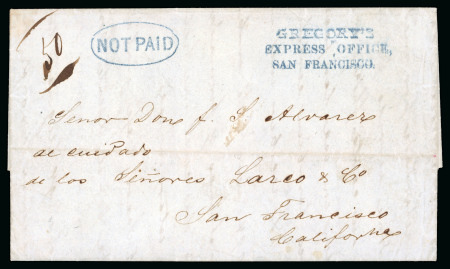 50
NOT PAID
GREGORY'S
EXPRESS OFFICE,
SAN FRANCISCO.
Senor Don J. S. Alvarez
al cuidado
de los Señores Larco & Co
San Francisco
California